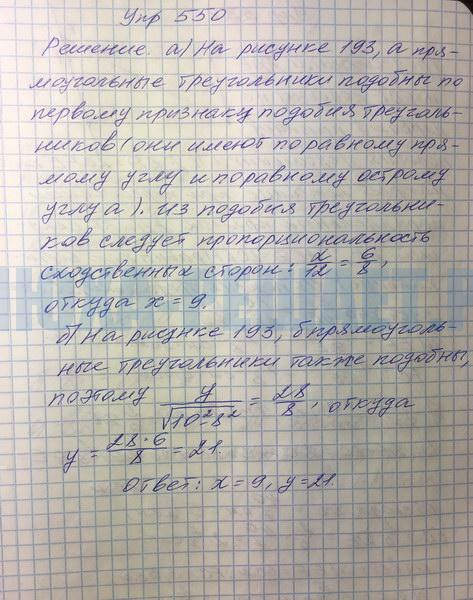 Упр 550
Решение. а) На рисунке 193, а пря-
моугольные треугольники подобны по
первому признаку подобия треуголь-
ников (они имеют поравному пря-
мому углу и поравному острому
углу а). Из подобия треугольни-
ков следует пропорциональность
сходственных сторон: x/12 = 6/8,
откуда x = 9.
б) На рисунке 193, б прямоуголь-
ные треугольники также подобны,
поэтому y/√10²-8² = 28/8, откуда
y = 28·6/8 = 21.
Ответ: x = 9, y = 21